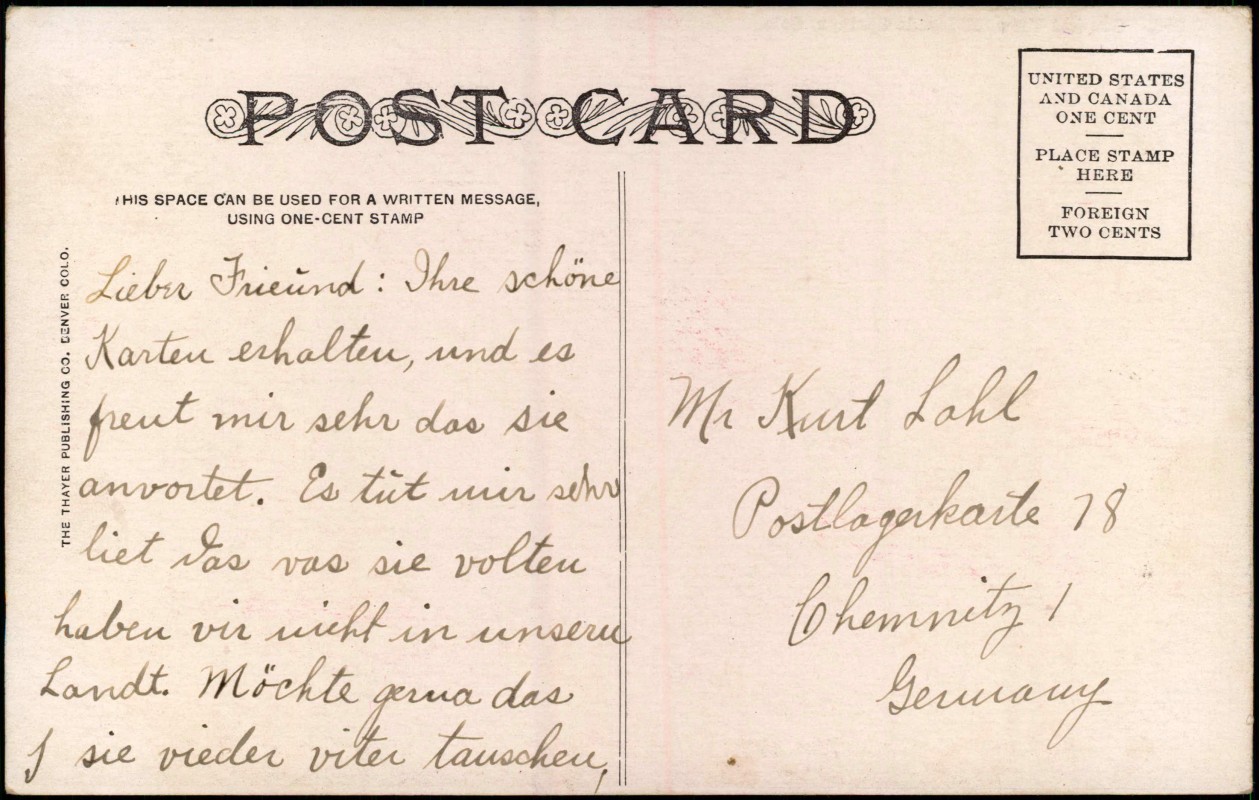 POST CARD
THIS SPACE CAN BE USED FOR A WRITTEN MESSAGE,
USING ONE-CENT STAMP
UNITED STATES
AND CANADA
ONE CENT
PLACE STAMP
HERE
FOREIGN
TWO CENTS
THE THAYER PUBLISHING CO. DENVER COLO.
Lieber Frieünd: Ihre schöne
Karten erhalten, und es
freut mir sehr das sie
anvortet. Es tüt mir sehr
liet das vas sie volten
haben vir nicht in unsern
Landt. Möchte gerna das
sie vieder viter tauschen,
Mr Kurt Lohl
Postlagerkarte 78
Chemnitz 1
Germany